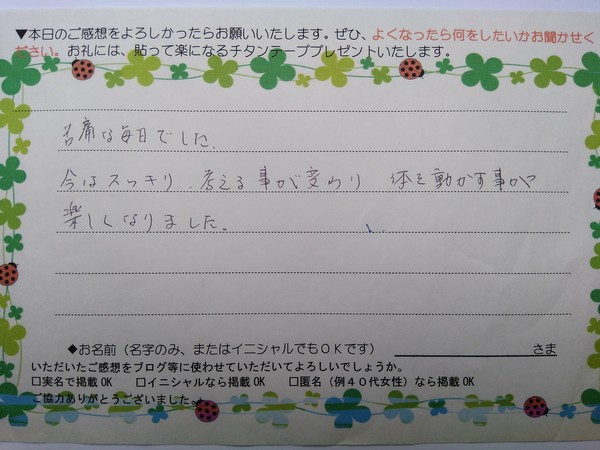 ▼本日のご感想をよろしかったらお願いいたします。ぜひ、よくなったら何をしたいかお聞かせく
ださい。お礼には、貼って楽になるチタンテーププレゼントいたします。
苦痛な毎日でした。
今はスッキリ、考える事が変わり 体を動かす事が
楽しくなりました。
◆お名前(名字のみ、またはイニシャルでもOKです) さま
いただいたご感想をブログ等に使わせていただいてよろしいでしょうか。
□実名で掲載OK □イニシャルなら掲載OK □匿名(例40代女性)なら掲載OK
ご協力ありがとうございました。